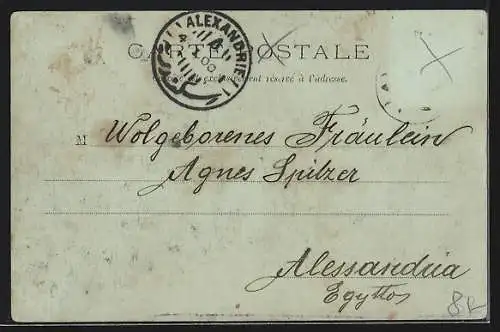 ALEXANDRIE
CARTE POSTALE
exclusivement réservé à l'adresse.
M Wolgeborenes Fräulein
Agnes Spitzer
Alessandria
Egyttos